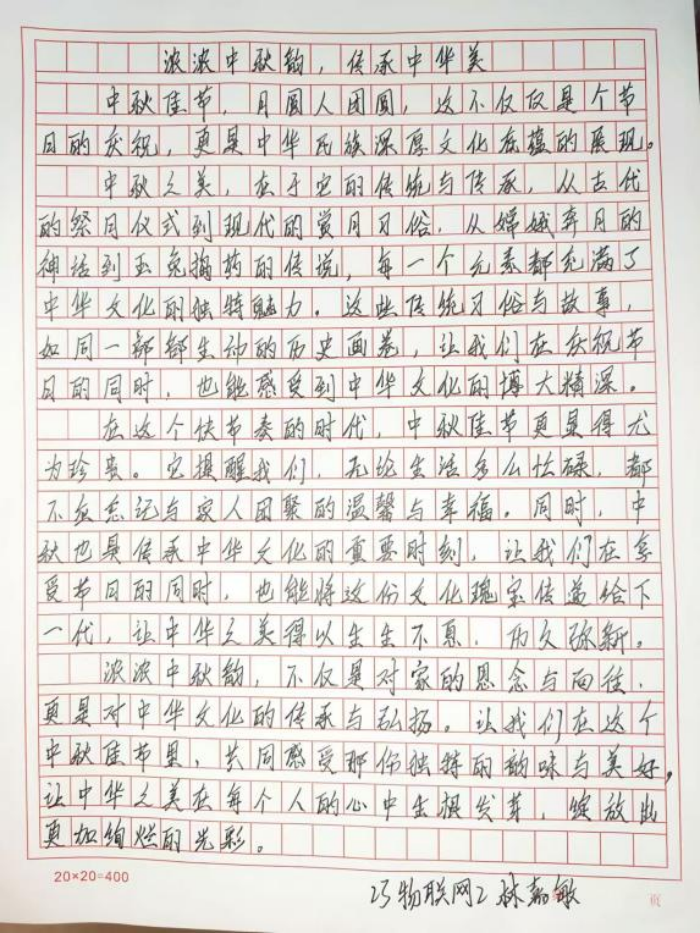 浓浓中秋韵，传承中华美
中秋佳节，月圆人团圆，这不仅仅是个节
日的庆祝，更是中华民族深厚文化底蕴的展现。
中秋之美，在于它的传统与传承，从古代
的祭月仪式到现代的赏月习俗，从嫦娥奔月的
神话到玉兔捣药的传说，每一个元素都充满了
中华文化的独特魅力。这些传统习俗与故事，
如同一部部生动的历史画卷，让我们在庆祝节
日的同时，也能感受到中华文化的博大精深。
在这个快节奏的时代，中秋佳节更显得尤
为珍贵。它提醒我们，无论生活多么忙碌，都
不应忘记与家人团聚的温馨与幸福。同时，中
秋也是传承中华文化的重要时刻，让我们在享
受节日的同时，也能将这份文化瑰宝传递给下
一代，让中华之美得以生生不息，历久弥新。
浓浓中秋韵，不仅是对家的思念与向往，
更是对中华文化的传承与弘扬。让我们在这个
中秋佳节里，共同感受那份独特的韵味与美好，
让中华之美在每个人的心中生根发芽，绽放出
更加绚烂的光彩。
20×20=400
23物联网2 林嘉敏